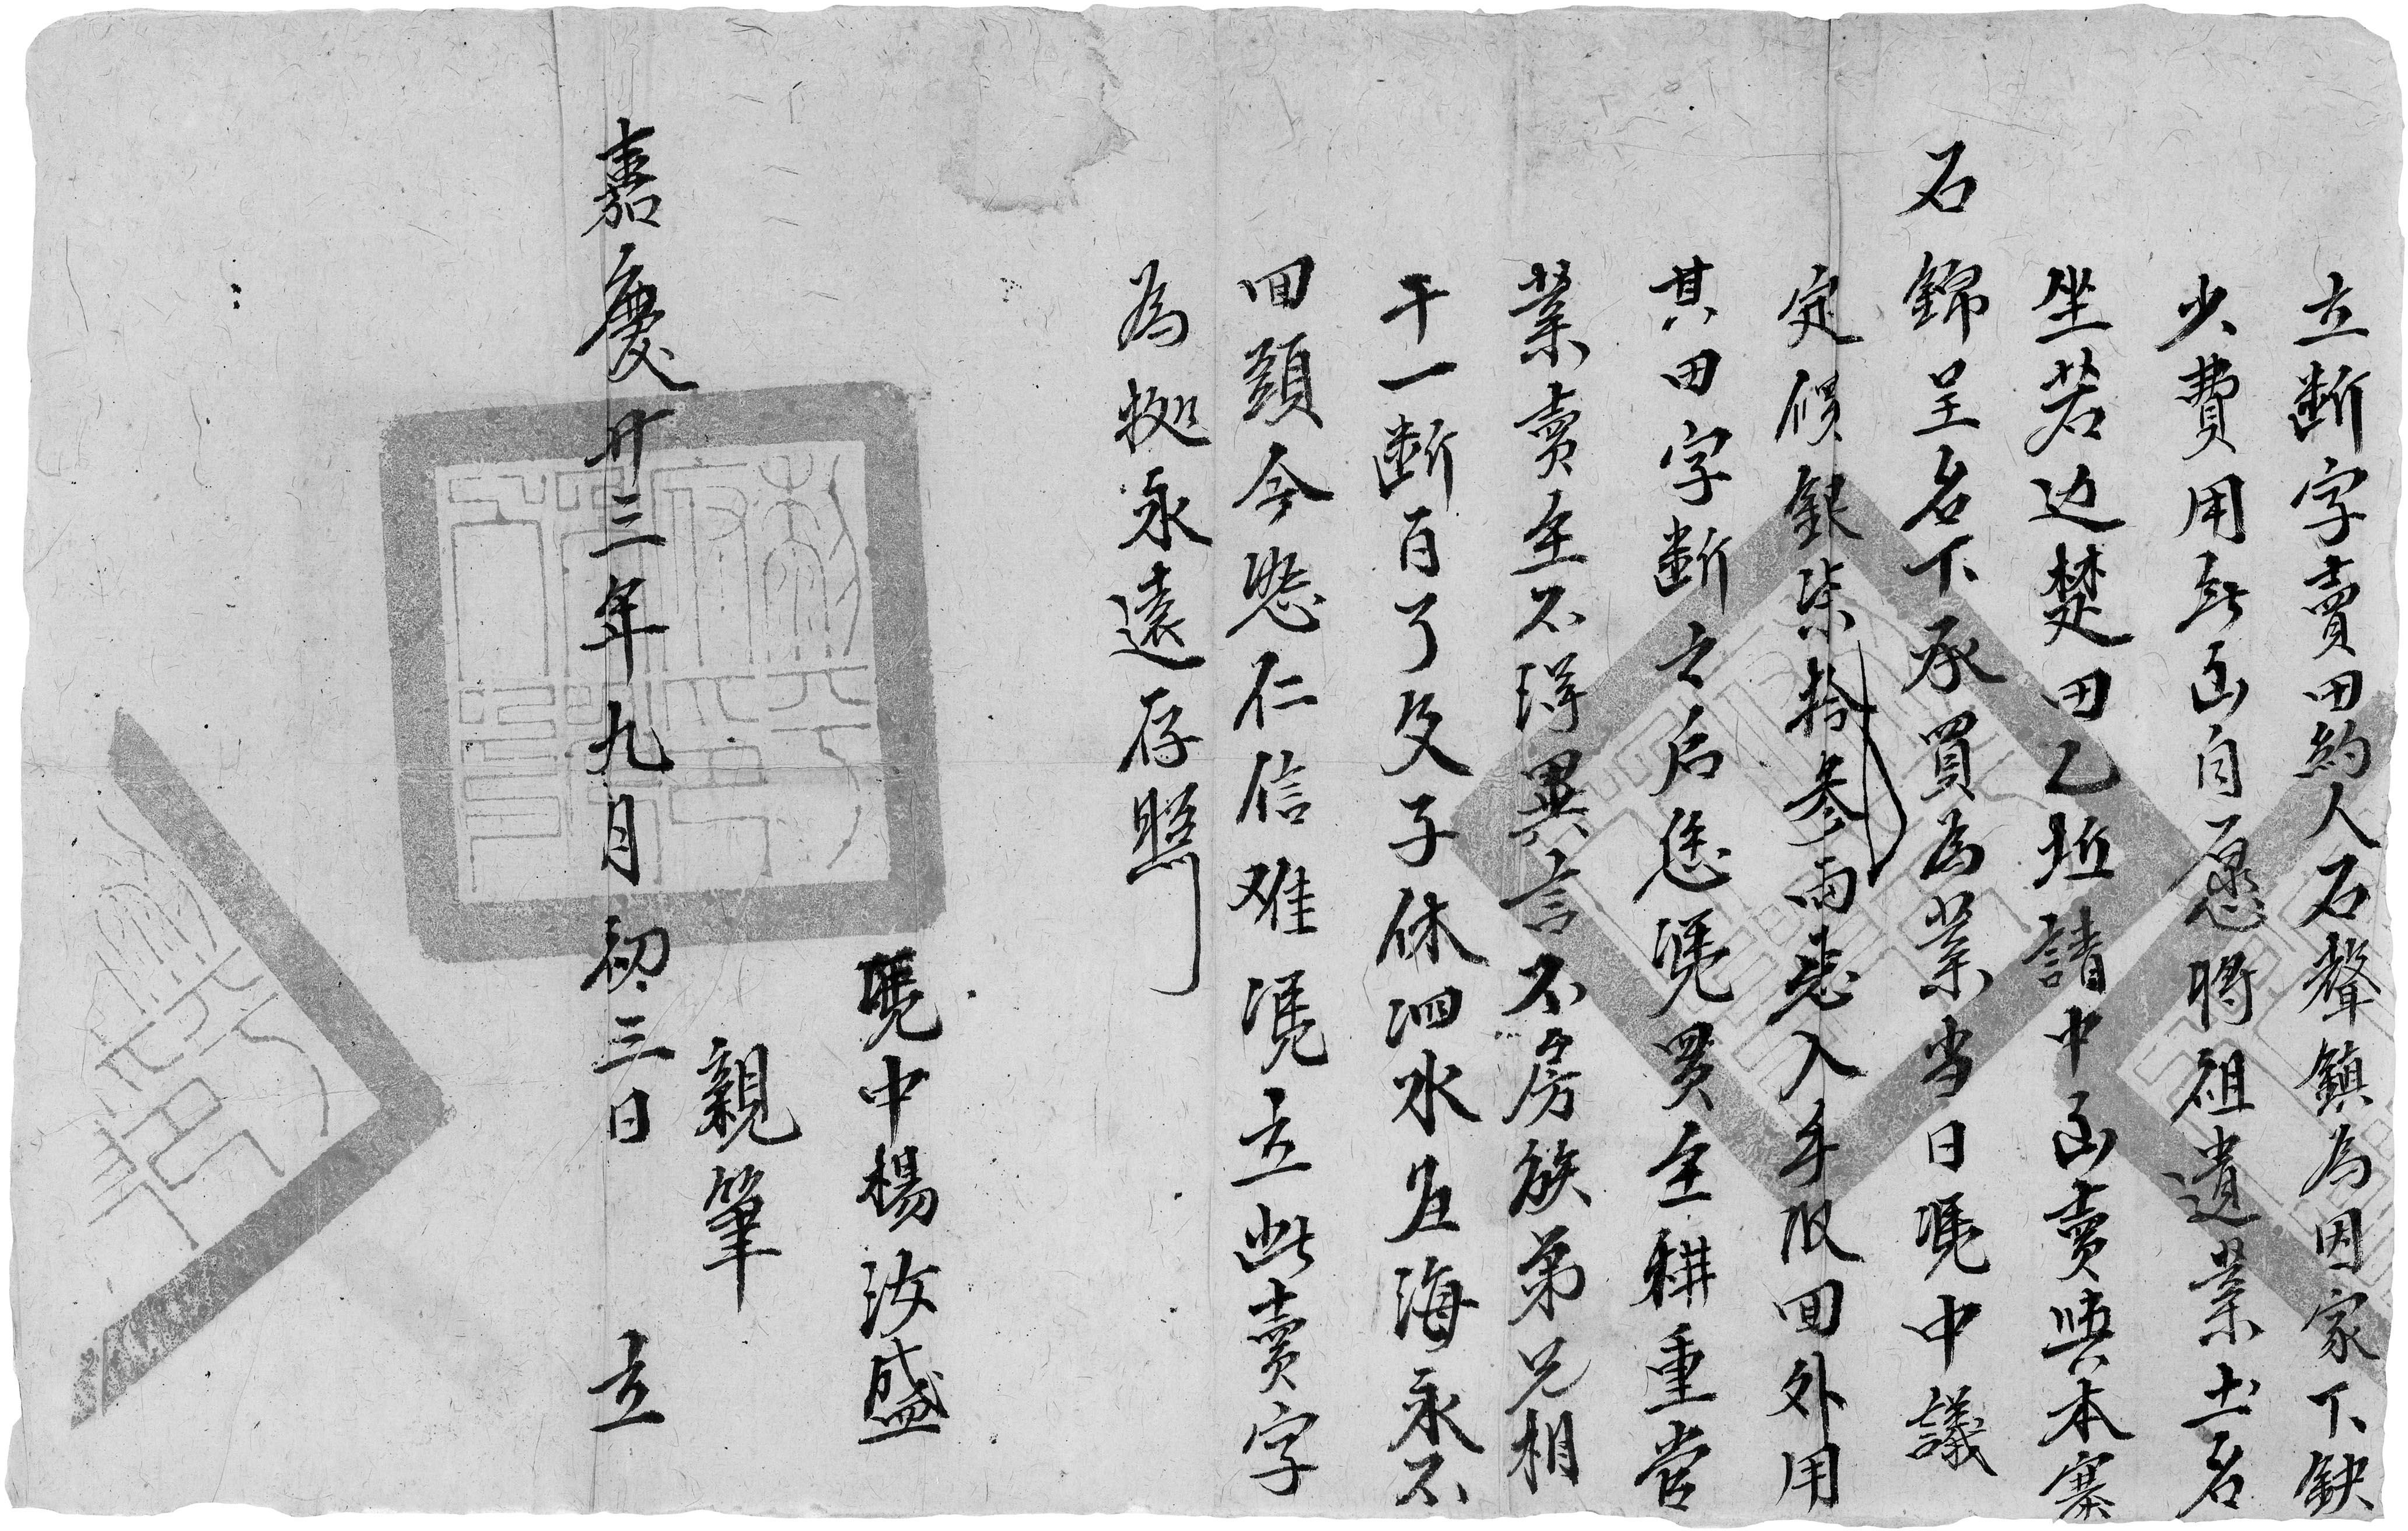 立断字賣田約人石聲鎮為因家下缺
少費用無出自愿將祖遺業土名
坐若边楚田乙坵請中出賣與本寨
石錦呈名下承買為業当日凴中議
定價銀柒拾叁両悉入手收回外用
其田字断之后恁凴買主耕重营
業賣主不得異言不房族弟兄相
干一断百了父子休泗水归海永不
回頭今恐仁信难凴立此賣字
為㨿永遠存照
凴中楊汝盛
親筆
嘉慶廿三年九月初三日 立